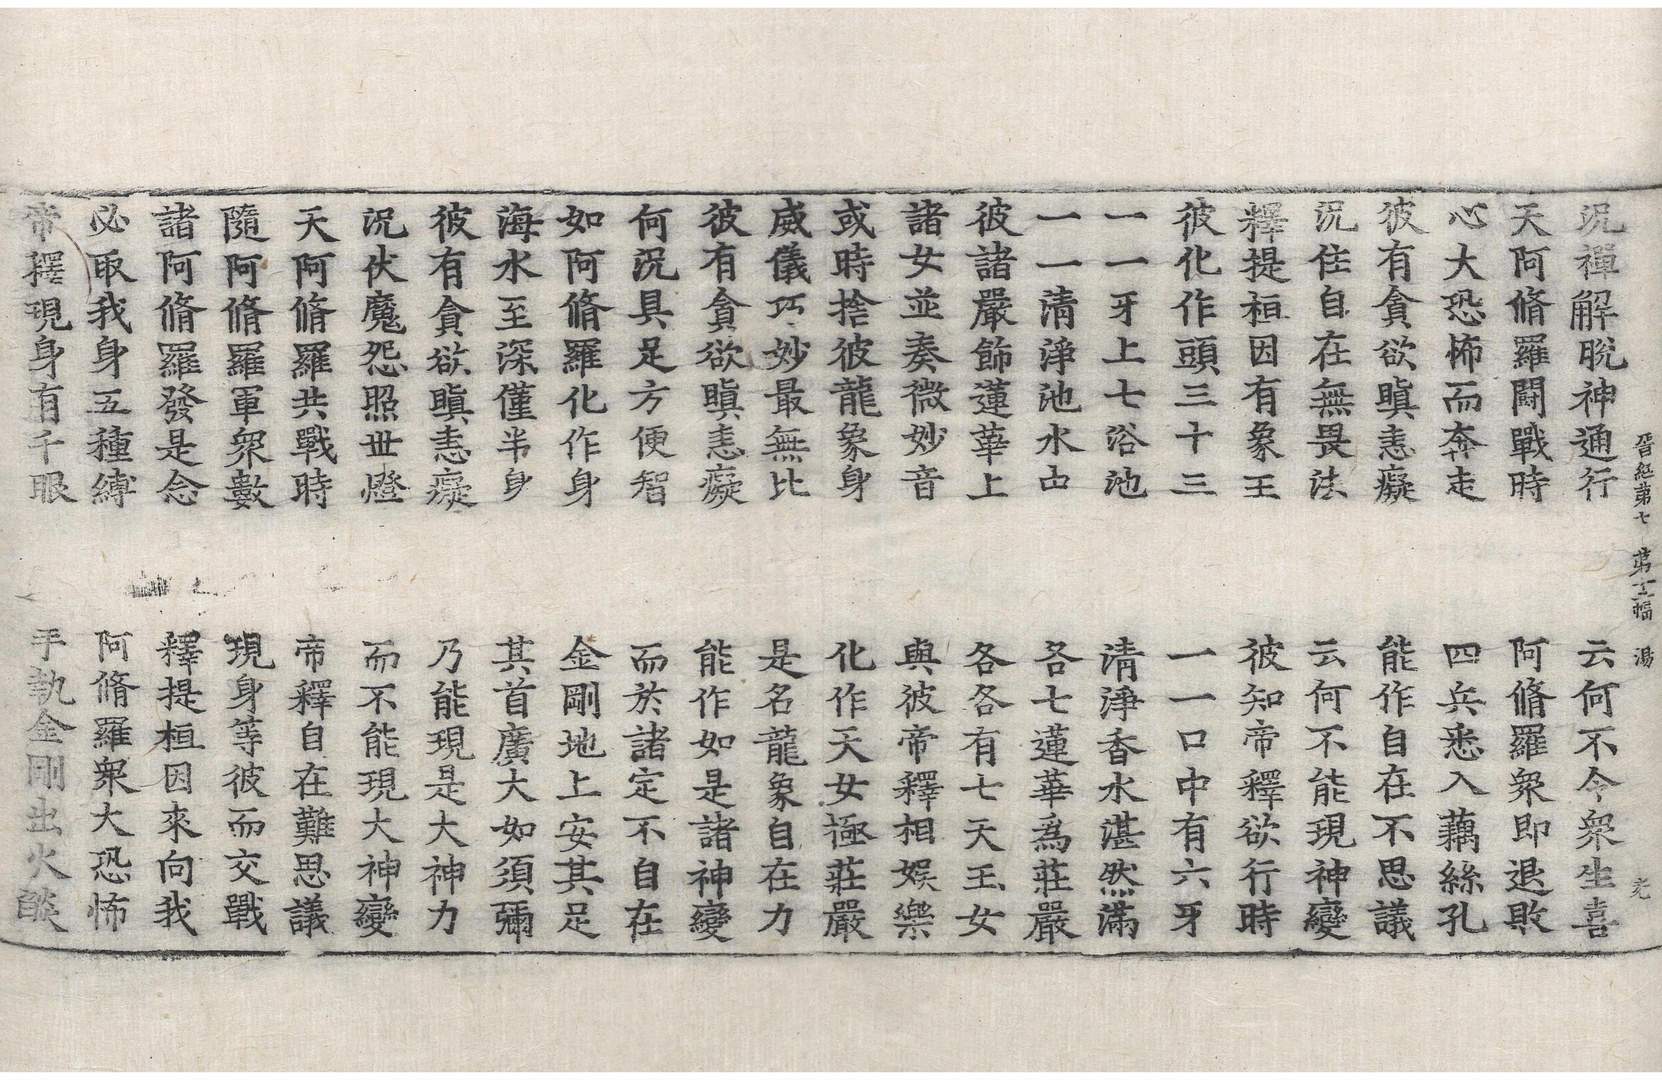 晉經第七 第 幅 湯 光
況禪解脫神通行 云何不令衆生喜
天阿脩羅鬪戰時 阿脩羅衆即退敗
心大恐怖而奔走 四兵悉入藕絲孔
彼有貪欲瞋恚癡 能作自在不思議
況住自在無畏法 云何不能現神變
釋提桓因有象王 彼知帝釋欲行時
彼化作頭三十三 一一口中有六牙
一一牙上七浴池 清淨香水湛然滿
一一清淨池水中 各七蓮華爲莊嚴
彼諸嚴飾蓮華上 各各有七天王女
諸女並奏微妙音 與彼帝釋相娛樂
或時捨彼龍象身 化作天女極莊嚴
威儀巧妙最無比 是名龍象自在力
彼有貪欲瞋恚癡 能作如是諸神變
何況具足方便智 而於諸定不自在
如阿脩羅化作身 金剛地上安其足
海水至深僅半身 其首廣大如須彌
彼有貪欲瞋恚癡 乃能現是大神力
況伏魔怨照世燈 而不能現大神變
天阿脩羅共戰時 帝釋自在難思議
隨阿脩羅軍衆數 現身等彼而交戰
諸阿脩羅發是念 釋提桓因來向我
必取我身五種縛 阿脩羅衆大恐怖
帝釋現身有千眼 手執金剛出火燄